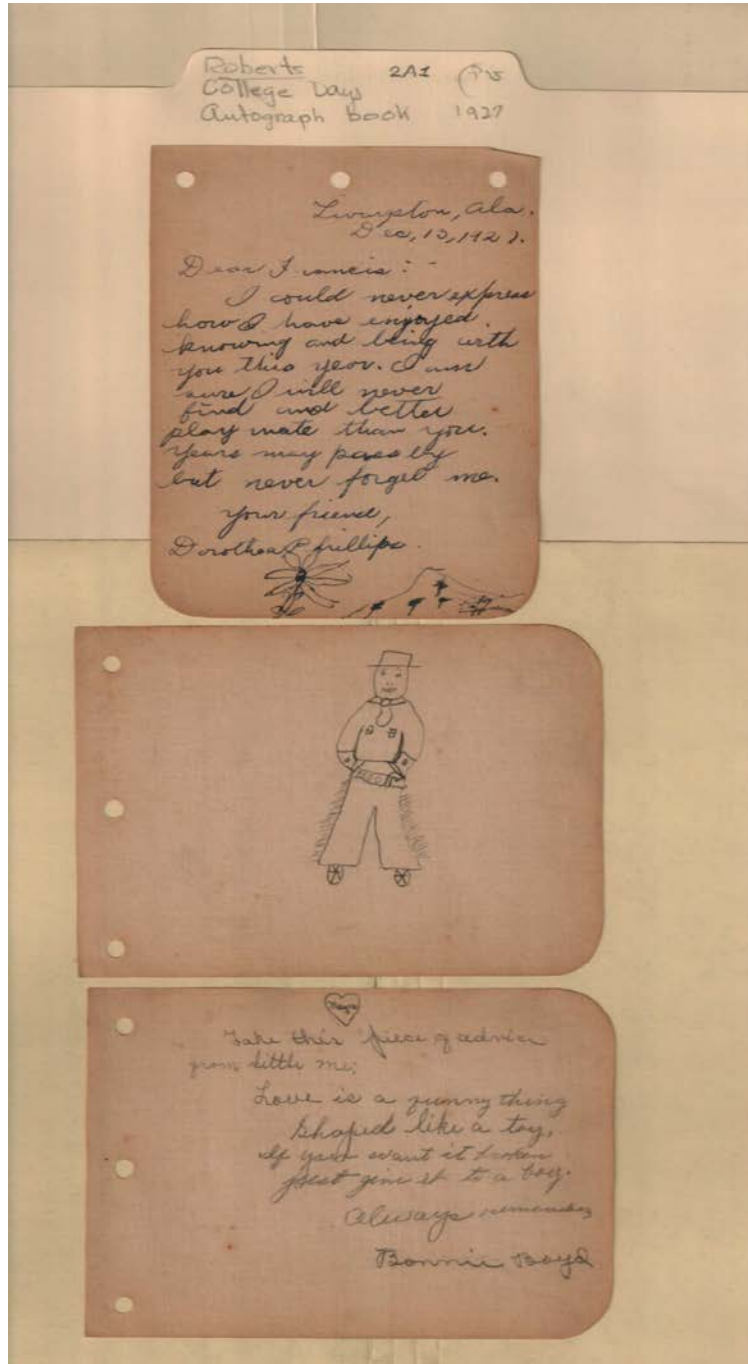 Roberts 2A1
College Days
Autograph book 1927
Livingston, Ala.
Dec, 13, 1927.
Dear Francis:-
I could never express
how I have enjoyed
knowing and being with
you this year. I am
sure I will never
find and better
play mate than you.
Years may pass by
but never forget me.
Your friend,
Dorothea Phillips.
Take this piece of advice
from little me;
Love is a funny thing
Shaped like a toy,
If you want it broken
just give it to a boy.
Always remember
Bonnie Boyd